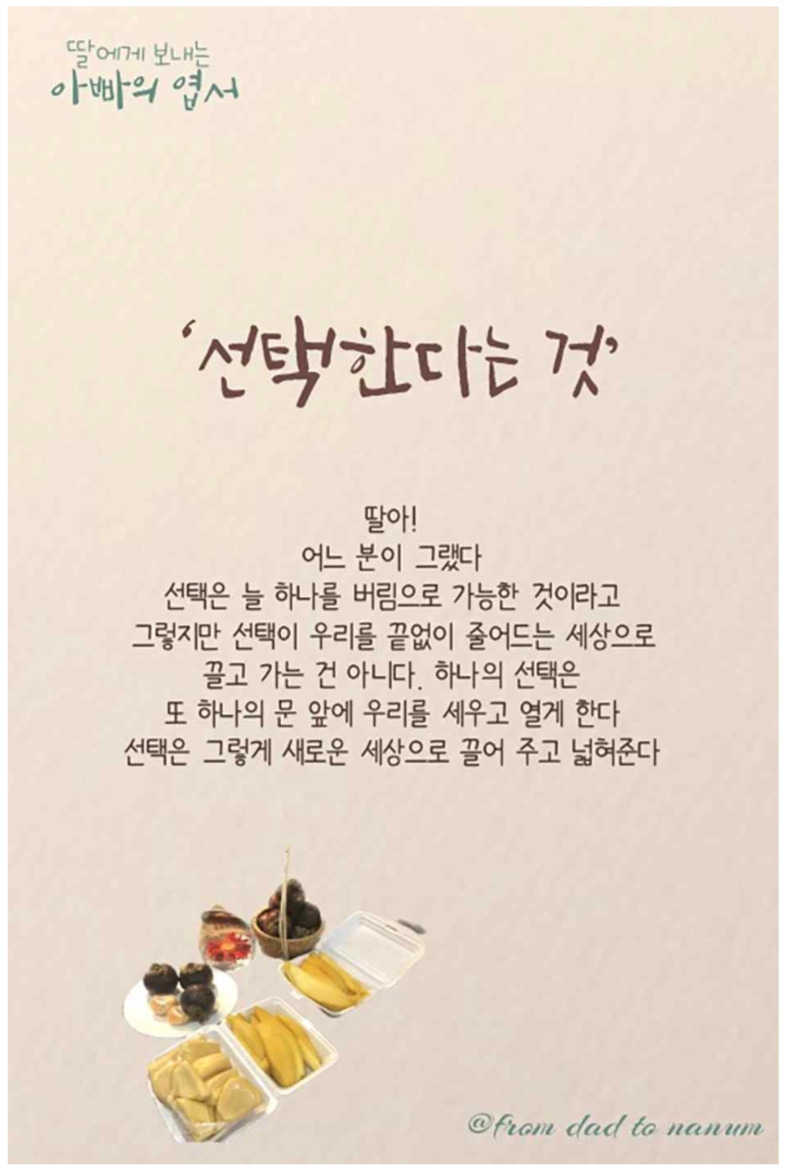 딸에게 보내는
아빠의 엽서
‘선택한다는 것’
딸아!
어느 분이 그랬다
선택은 늘 하나를 버림으로 가능한 것이라고
그렇지만 선택이 우리를 끝없이 줄어드는 세상으로
끌고 가는 건 아니다. 하나의 선택은
또 하나의 문 앞에 우리를 세우고 열게 한다
선택은 그렇게 새로운 세상으로 끌어 주고 넓혀준다
@from dad to nanum